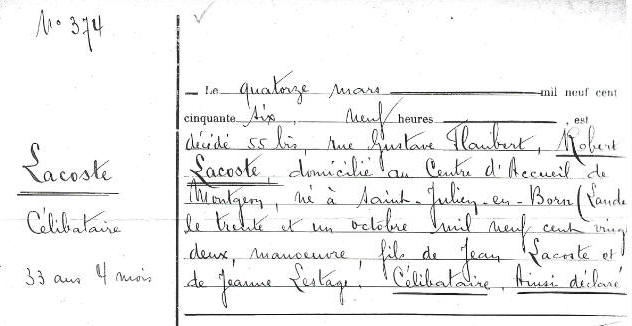 N° 374
Lacoste
Célibataire
33 ans 4 mois
Le quatorze mars mil neuf cent
cinquante six, neuf heures , est
décédé 55 bis, rue Gustave Flaubert, Robert
Lacoste, domicilié au Centre d'Accueil de
Montgeron, né à Saint-Julien-en-Born (Lande
le trente et un octobre mil neuf cent ving
deux, manoeuvre, fils de Jean Lacoste et
de Jeanne Lestage. Célibataire, Ainsi déclaré